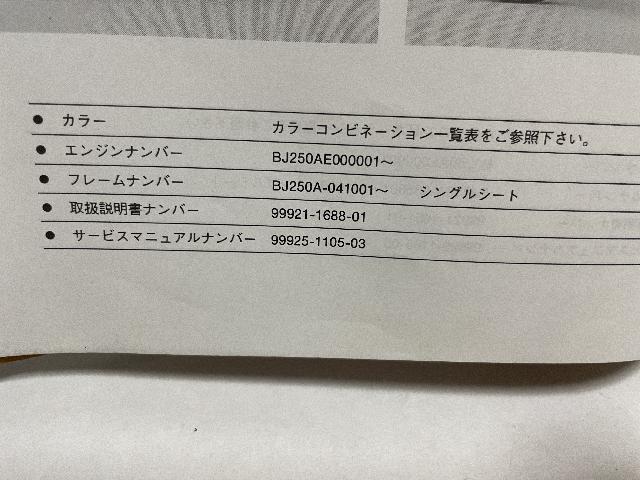 ● カラー カラーコンビネーション一覧表をご参照下さい。
● エンジンナンバー BJ250AE000001～
● フレームナンバー BJ250A-041001～ シングルシート
● 取扱説明書ナンバー 99921-1688-01
● サービスマニュアルナンバー 99925-1105-03